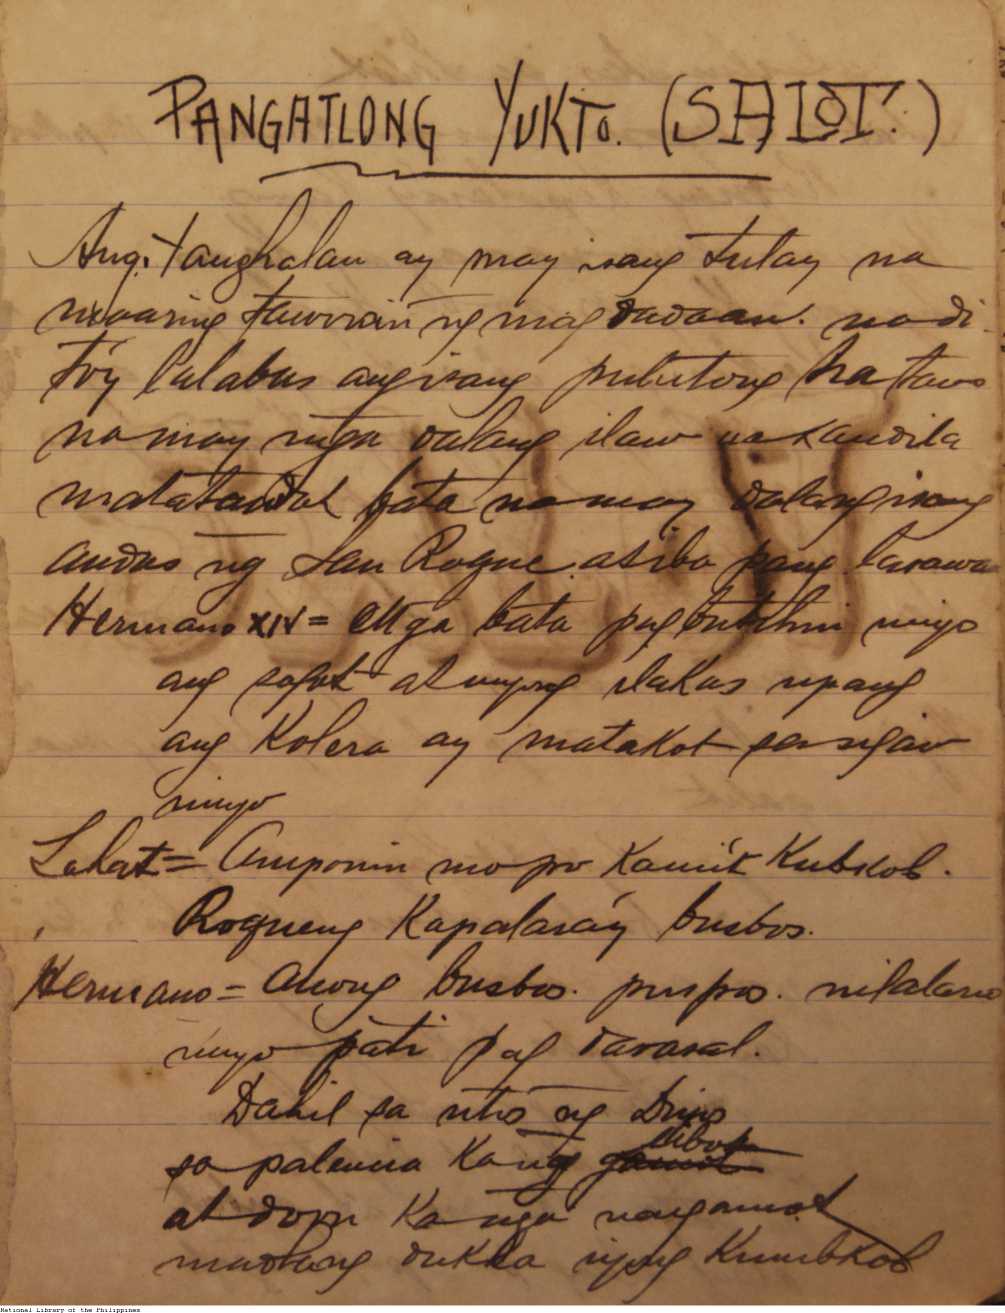 PANGATLONG YUKTO. (SALOT.)
Ang. Tanghalan ay may isang tulay na
maaring tawirin ng mag dadaan. na di
to'y lalabas ang isang pulutong na tawo
na may mga dalang ilaw na kandila
matatanda't bata na may dalang isang
andas ng San Roque. at iba pang larawa
Hermano XIV = Mga bata pag butihin ninyo
ang sagot at inyong ilakas upang
ang Kolera ay matakot sa sigaw
ninyo
Lahat = Amponin mo po kami't Kubkob.
Roqueng Kapalara'y busbos.
Hermano = Anong busbos. puspos. nilalaro
ninyo pati pag darasal.
Dahil sa utos ng Dios
sa palencia Ka'ng
libot
at doon Ka nga nangamot
madlang dukha iyong Kinubkob
National Library of the Philippines